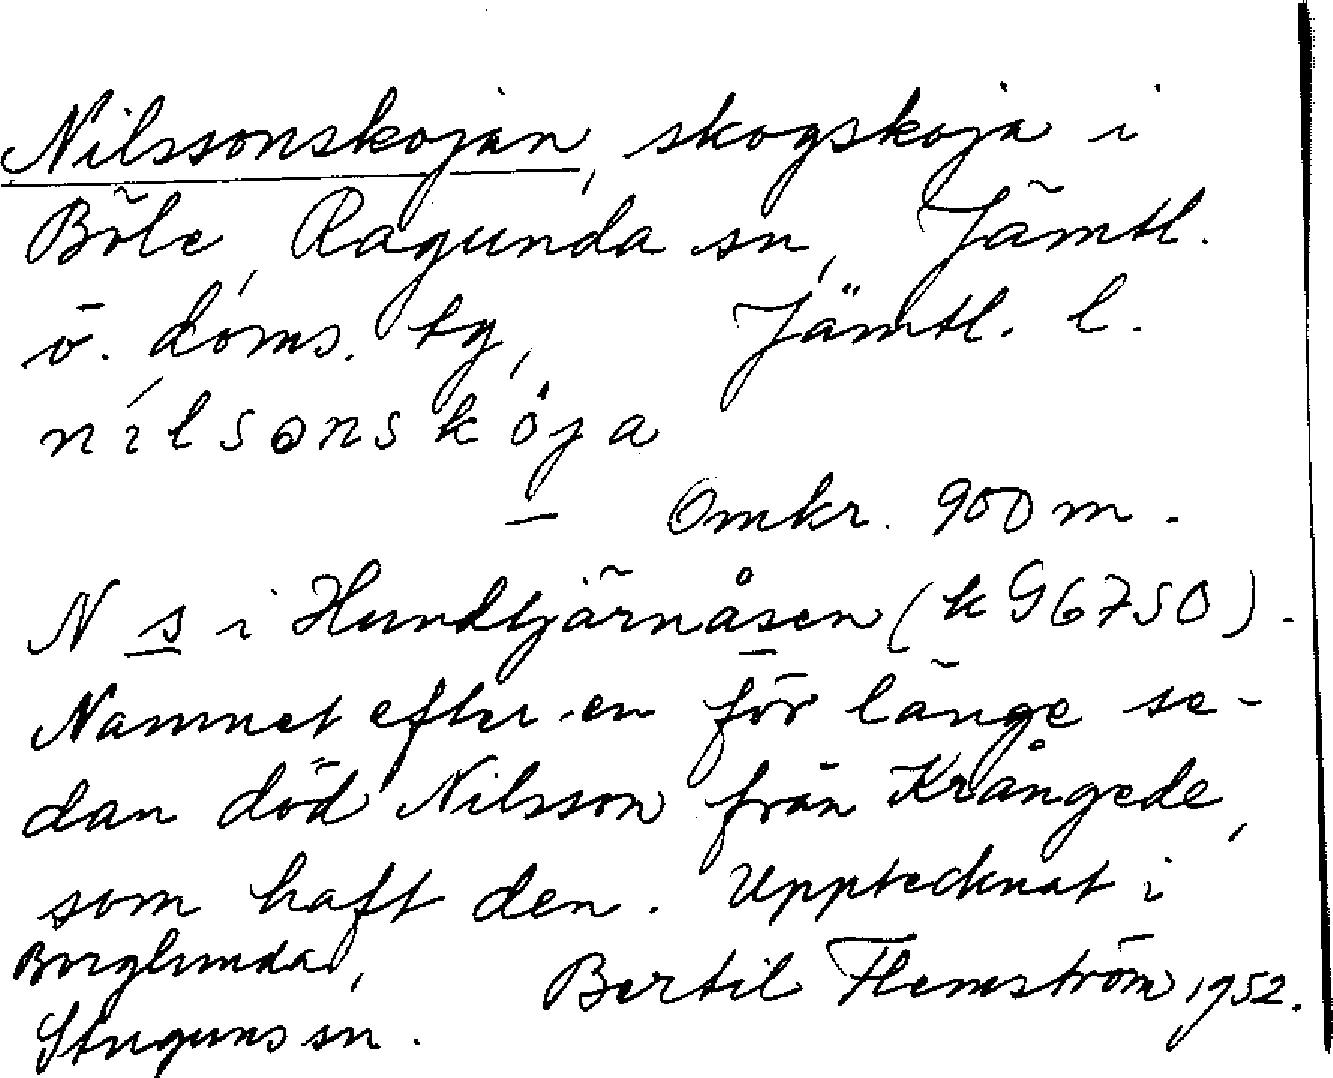 Nilssonskojan, skogskoja i
Böle, Ragunda sn, Jämtl.
ö. doms. tg, Jämtl. l.
nílsonsköja
— Omkr. 900 m.
N s i Hundtjärnåsen (k G6750).
Namnet efter en för länge se-
dan död Nilsson från Krångede,
som haft den. Upptecknat i
Borglunda,
Bertil Flemström 1952.
Stuguns sn.